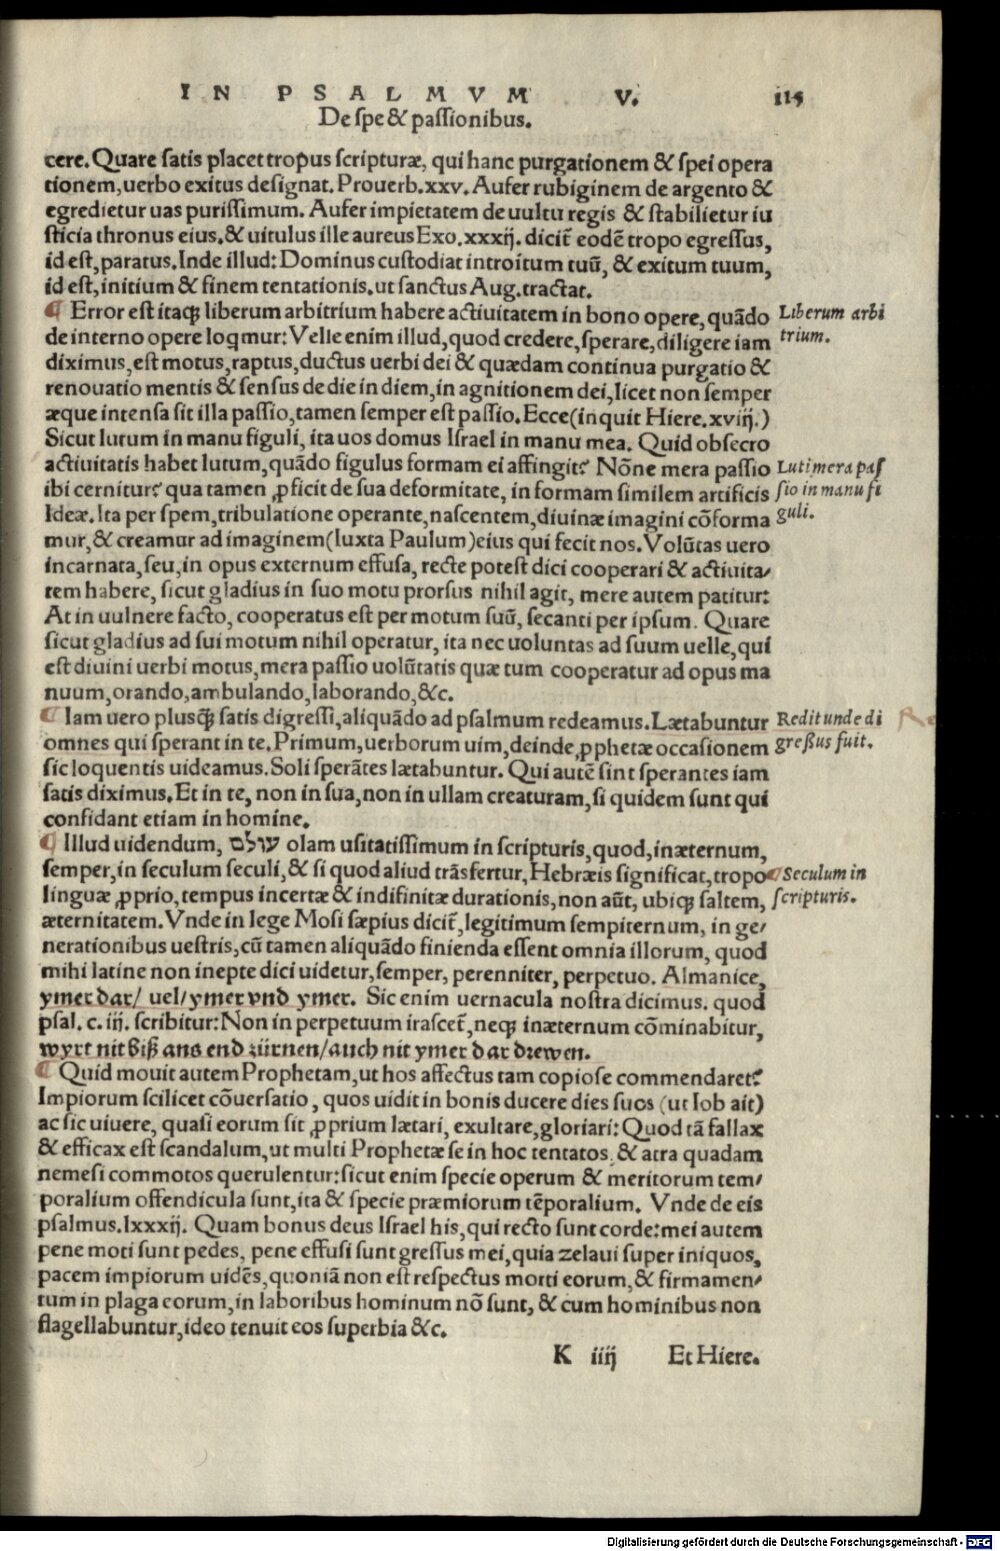 IN PSALMVM V. 115
De spe & passionibus.
cere. Quare satis placet tropus scripturæ, qui hanc purgationem & spei opera
tionem, uerbo exitus designat. Prouerb. xxv. Aufer rubiginem de argento &
egredietur uas purissimum. Aufer impietatem de uultu regis & stabilietur iu
sticia thronus eius. & uitulus ille aureus Exo. xxxij. dicit̃ eodẽ tropo egressus,
id est, paratus. Inde illud: Dominus custodiat introitum tuũ, & exitum tuum,
id est, initium & finem tentationis. ut sanctus Aug. tractat.
¶ Error est itaq; liberum arbitrium habere actiuitatem in bono opere, quãdo
Liberum arbi
de interno opere loqmur: Velle enim illud, quod credere, sperare, diligere iam
trium.
diximus, est motus, raptus, ductus uerbi dei & quædam continua purgatio &
renouatio mentis & sensus de die in diem, in agnitionem dei, licet non semper
æque intensa sit illa passio, tamen semper est passio. Ecce (inquit Hiere. xviij.)
Sicut lutum in manu figuli, ita uos domus Israel in manu mea. Quid obsecro
actiuitatis habet lutum, quãdo figulus formam ei affingit? Nõne mera passio
Luti mera pas
ibi cernitur? qua tamen ꝓficit de sua deformitate, in formam similem artificis
sio in manu fi
Ideæ. Ita per spem, tribulatione operante, nascentem, diuinæ imagini cõforma
guli.
mur, & creamur ad imaginem (Iuxta Paulum) eius qui fecit nos. Volũtas uero
incarnata, seu, in opus externum effusa, recte potest dici cooperari & actiuita/
tem habere, sicut gladius in suo motu prorsus nihil agit, mere autem patitur:
At in uulnere facto, cooperatus est per motum suũ, secanti per ipsum. Quare
sicut gladius ad sui motum nihil operatur, ita nec uoluntas ad suum uelle, qui
est diuini uerbi motus, mera passio uolũtatis quæ tum cooperatur ad opus ma
nuum, orando, ambulando, laborando, &c.
¶ Iam uero plusq̃ satis digressi, aliquãdo ad psalmum redeamus. Lætabuntur
Redit unde di
omnes qui sperant in te. Primum, uerborum uim, deinde, ꝓphetæ occasionem
gressus fuit.
sic loquentis uideamus. Soli sperãtes lætabuntur. Qui autẽ sint sperantes iam
satis diximus. Et in te, non in sua, non in ullam creaturam, si quidem sunt qui
confidant etiam in homine.
¶ Illud uidendum, עולם olam usitatissimum in scripturis, quod, inæternum,
semper, in seculum seculi, & si quod aliud trãsfertur, Hebræis significat, tropo
Seculum in
linguæ ꝓprio, tempus incertæ & indifinitæ durationis, non aũt, ubiq; saltem,
scripturis.
æternitatem. Vnde in lege Mosi sæpius dicit̃, legitimum sempiternum, in ge/
nerationibus uestris, cũ tamen aliquãdo finienda essent omnia illorum, quod
mihi latine non inepte dici uidetur, semper, perenniter, perpetuo. Almanice,
ymer dar/ uel/ ymer vnd ymer. Sic enim uernacula nostra dicimus. quod
psal. c. iij. scribitur: Non in perpetuum irascet̃, neq; inæternum cõminabitur,
wyrt nit biß ans end zürnen/ auch nit ymer dar drewen.
¶ Quid mouit autem Prophetam, ut hos affectus tam copiose commendaret?
Impiorum scilicet cõuersatio, quos uidit in bonis ducere dies suos (ut Iob ait)
ac sic uiuere, quasi eorum sit ꝓprium lætari, exultare, gloriari: Quod tã fallax
& efficax est scandalum, ut multi Prophetæ se in hoc tentatos, & atra quadam
nemesi commotos querulentur: sicut enim specie operum & meritorum tem/
poralium offendicula sunt, ita & specie præmiorum tẽporalium. Vnde de eis
psalmus. lxxxij. Quam bonus deus Israel his, qui recto sunt corde: mei autem
pene moti sunt pedes, pene effusi sunt gressus mei, quia zelaui super iniquos,
pacem impiorum uidẽs, quoniã non est respectus morti eorum, & firmamen/
tum in plaga eorum, in laboribus hominum nõ sunt, & cum hominibus non
flagellabuntur, ideo tenuit eos superbia &c.
K iiij Et Hiere.
Digitalisierung gefördert durch die Deutsche Forschungsgemeinschaft - DFG